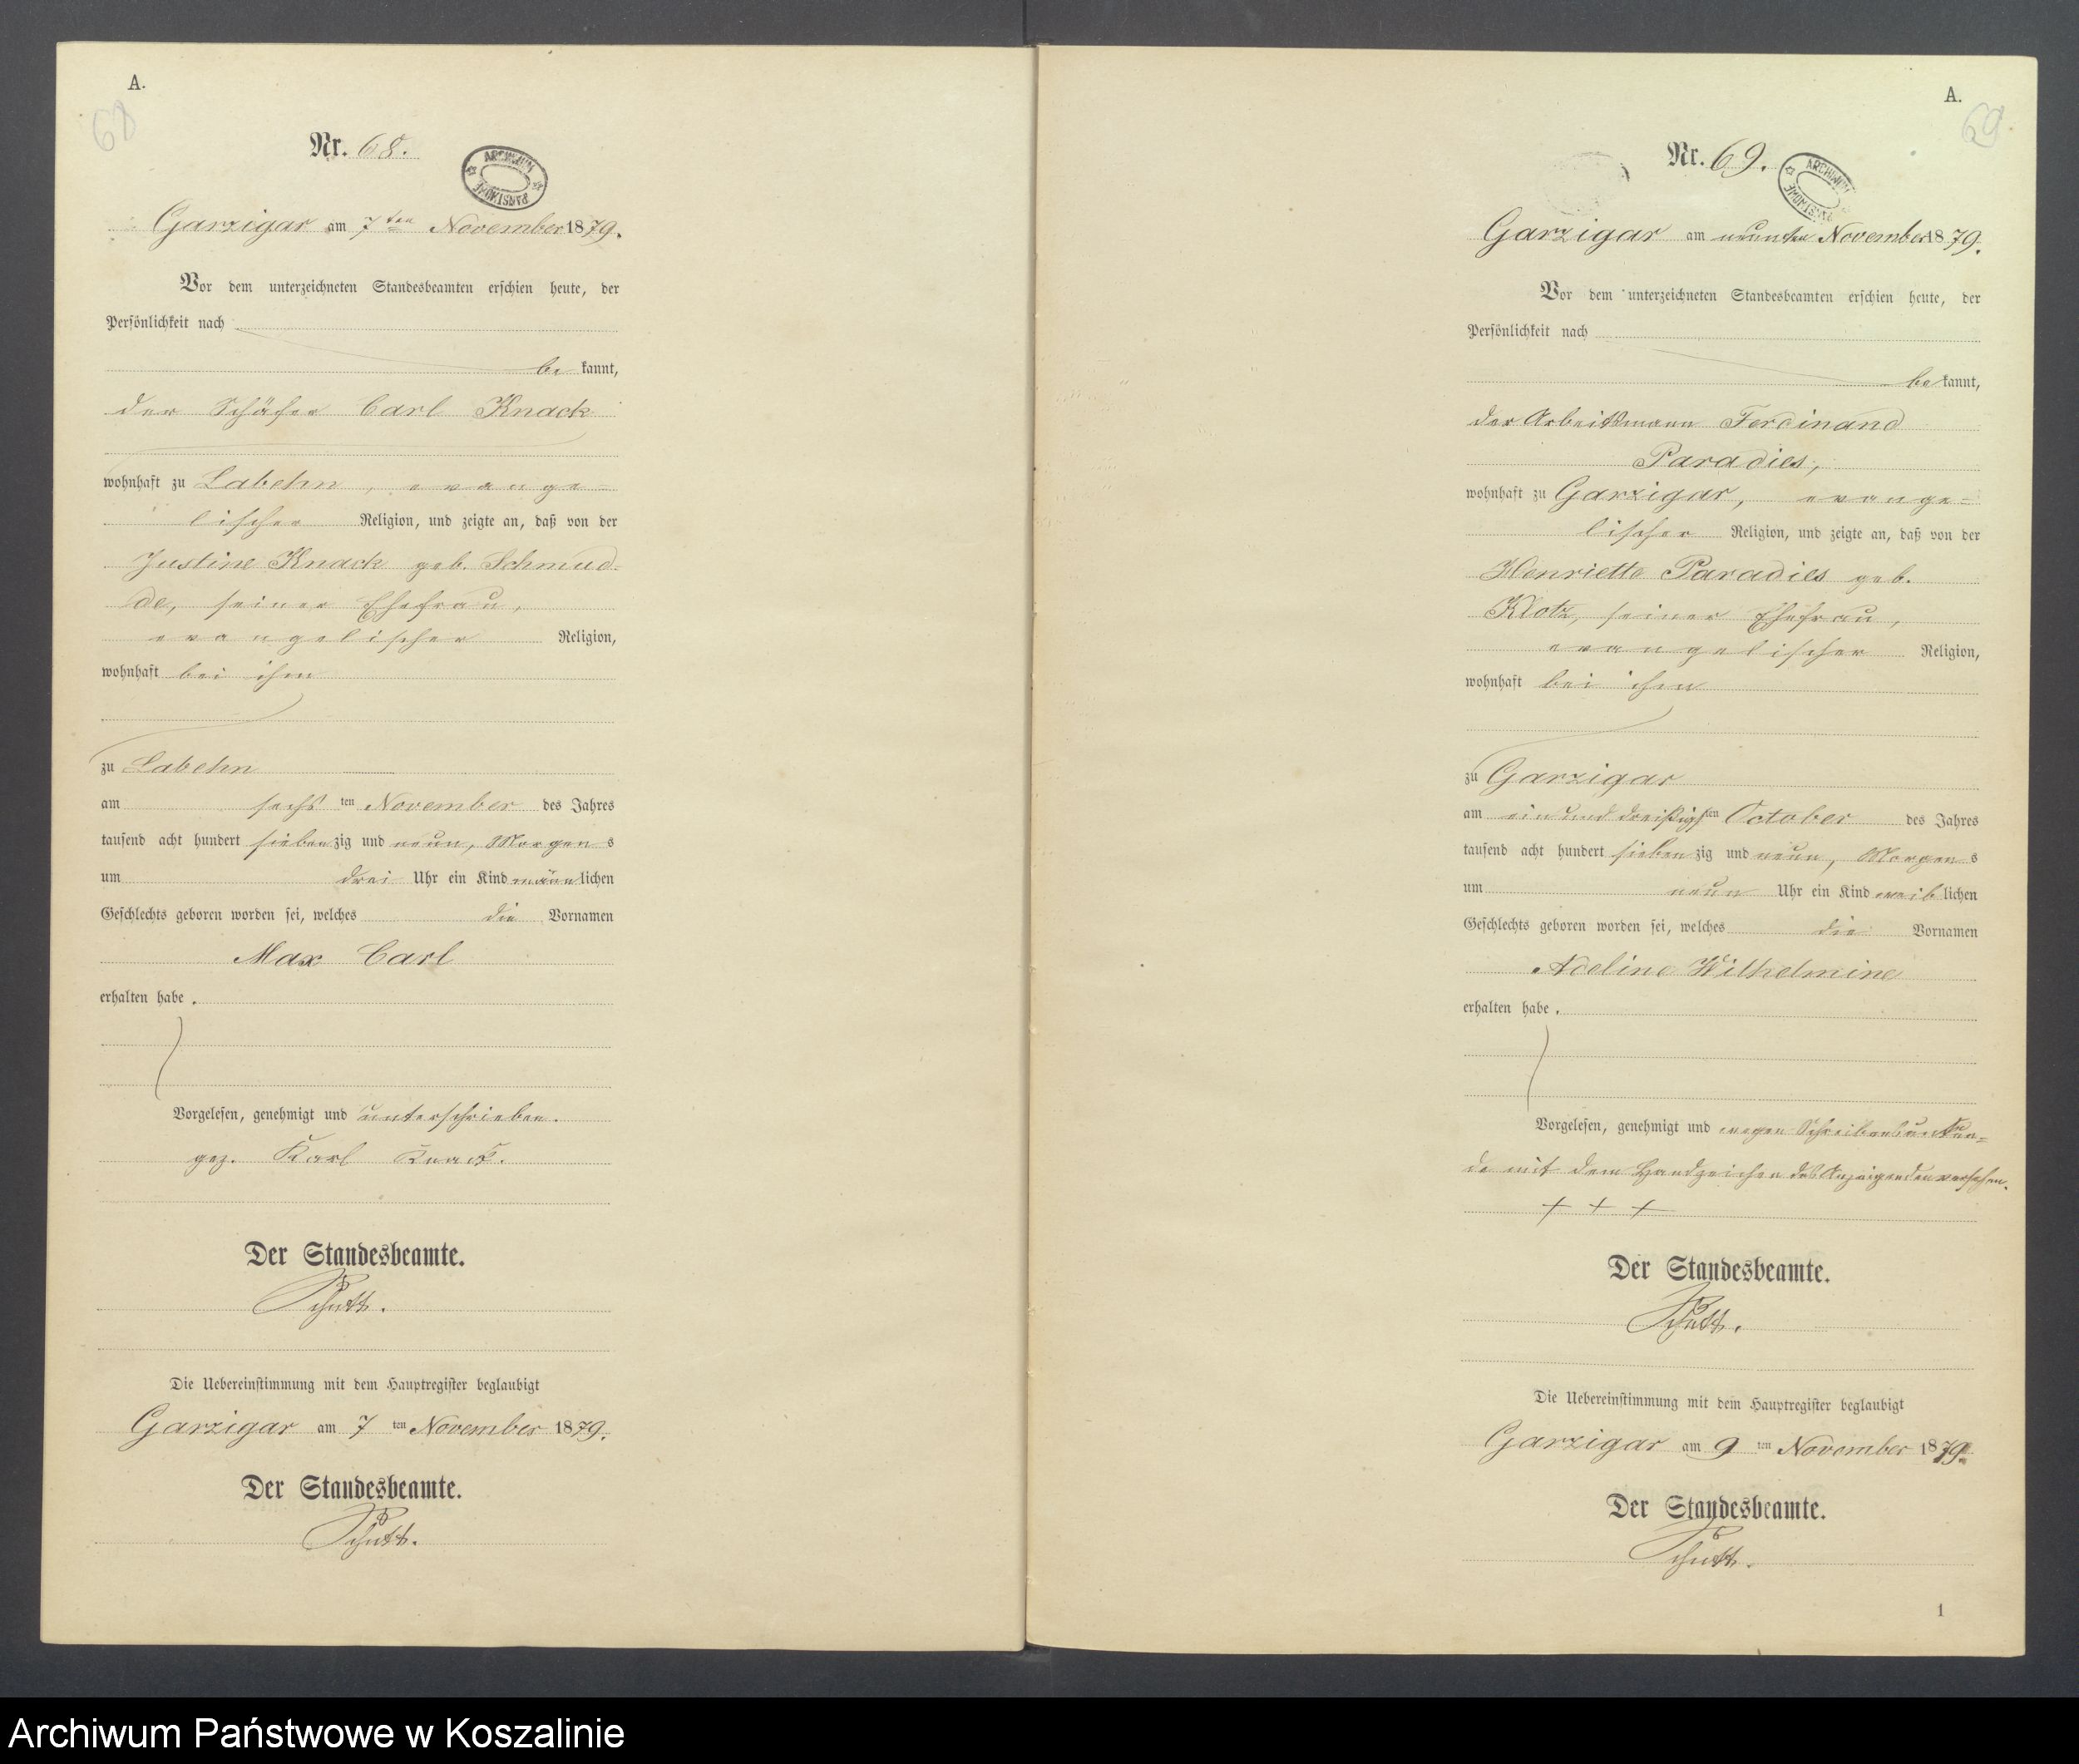 A.
68
Nr. 68.
ARCHIWUM PAŃSTWOWE
Garzigar am 7ten November 1879.
Vor dem unterzeichneten Standesbeamten erschien heute, der
Persönlichkeit nach
be kannt,
der Schäfer Carl Knack
wohnhaft zu Labehn, evange=
lischer Religion, und zeigte an, daß von der
Justine Knack geb. Schmud=
de, seiner Ehefrau,
evangelischer Religion,
wohnhaft bei ihm
zu Labehn
am sechs ten November des Jahres
tausend acht hundert sieben zig und neun, Morgen s
um drei Uhr ein Kind männ lichen
Geschlechts geboren worden sei, welches die Vornamen
Max Carl
erhalten habe.
Vorgelesen, genehmigt und unterschrieben.
gez. Karl Knack.
Der Standesbeamte.
Schutt.
Die Uebereinstimmung mit dem Hauptregister beglaubigt
Garzigar am 7 ten November 1879.
Der Standesbeamte.
Schutt.
A.
69.
Nr. 69.
ARCHIWUM PAŃSTWOWE
Garzigar am neunten November 1879.
Vor dem unterzeichneten Standesbeamten erschien heute, der
Persönlichkeit nach
be kannt,
der Arbeitsmann Ferdinand
Paradies,
wohnhaft zu Garzigar, evange=
lischer Religion, und zeigte an, daß von der
Henriette Paradies geb.
Klotz, seiner Ehefrau,
evangelischer Religion,
wohnhaft bei ihm
zu Garzigar
am ein und dreißigs ten October des Jahres
tausend acht hundert sieben zig und neun, Morgen s
um neun Uhr ein Kind weib lichen
Geschlechts geboren worden sei, welches die Vornamen
Adeline Wilhelmine
erhalten habe.
Vorgelesen, genehmigt und wegen Schreibensunkun=
de mit dem Handzeichen des Anzeigenden versehen.
+ + +
Der Standesbeamte.
Schutt.
Die Uebereinstimmung mit dem Hauptregister beglaubigt
Garzigar am 9 ten November 1879.
Der Standesbeamte.
Schutt.
1
Archiwum Państwowe w Koszalinie